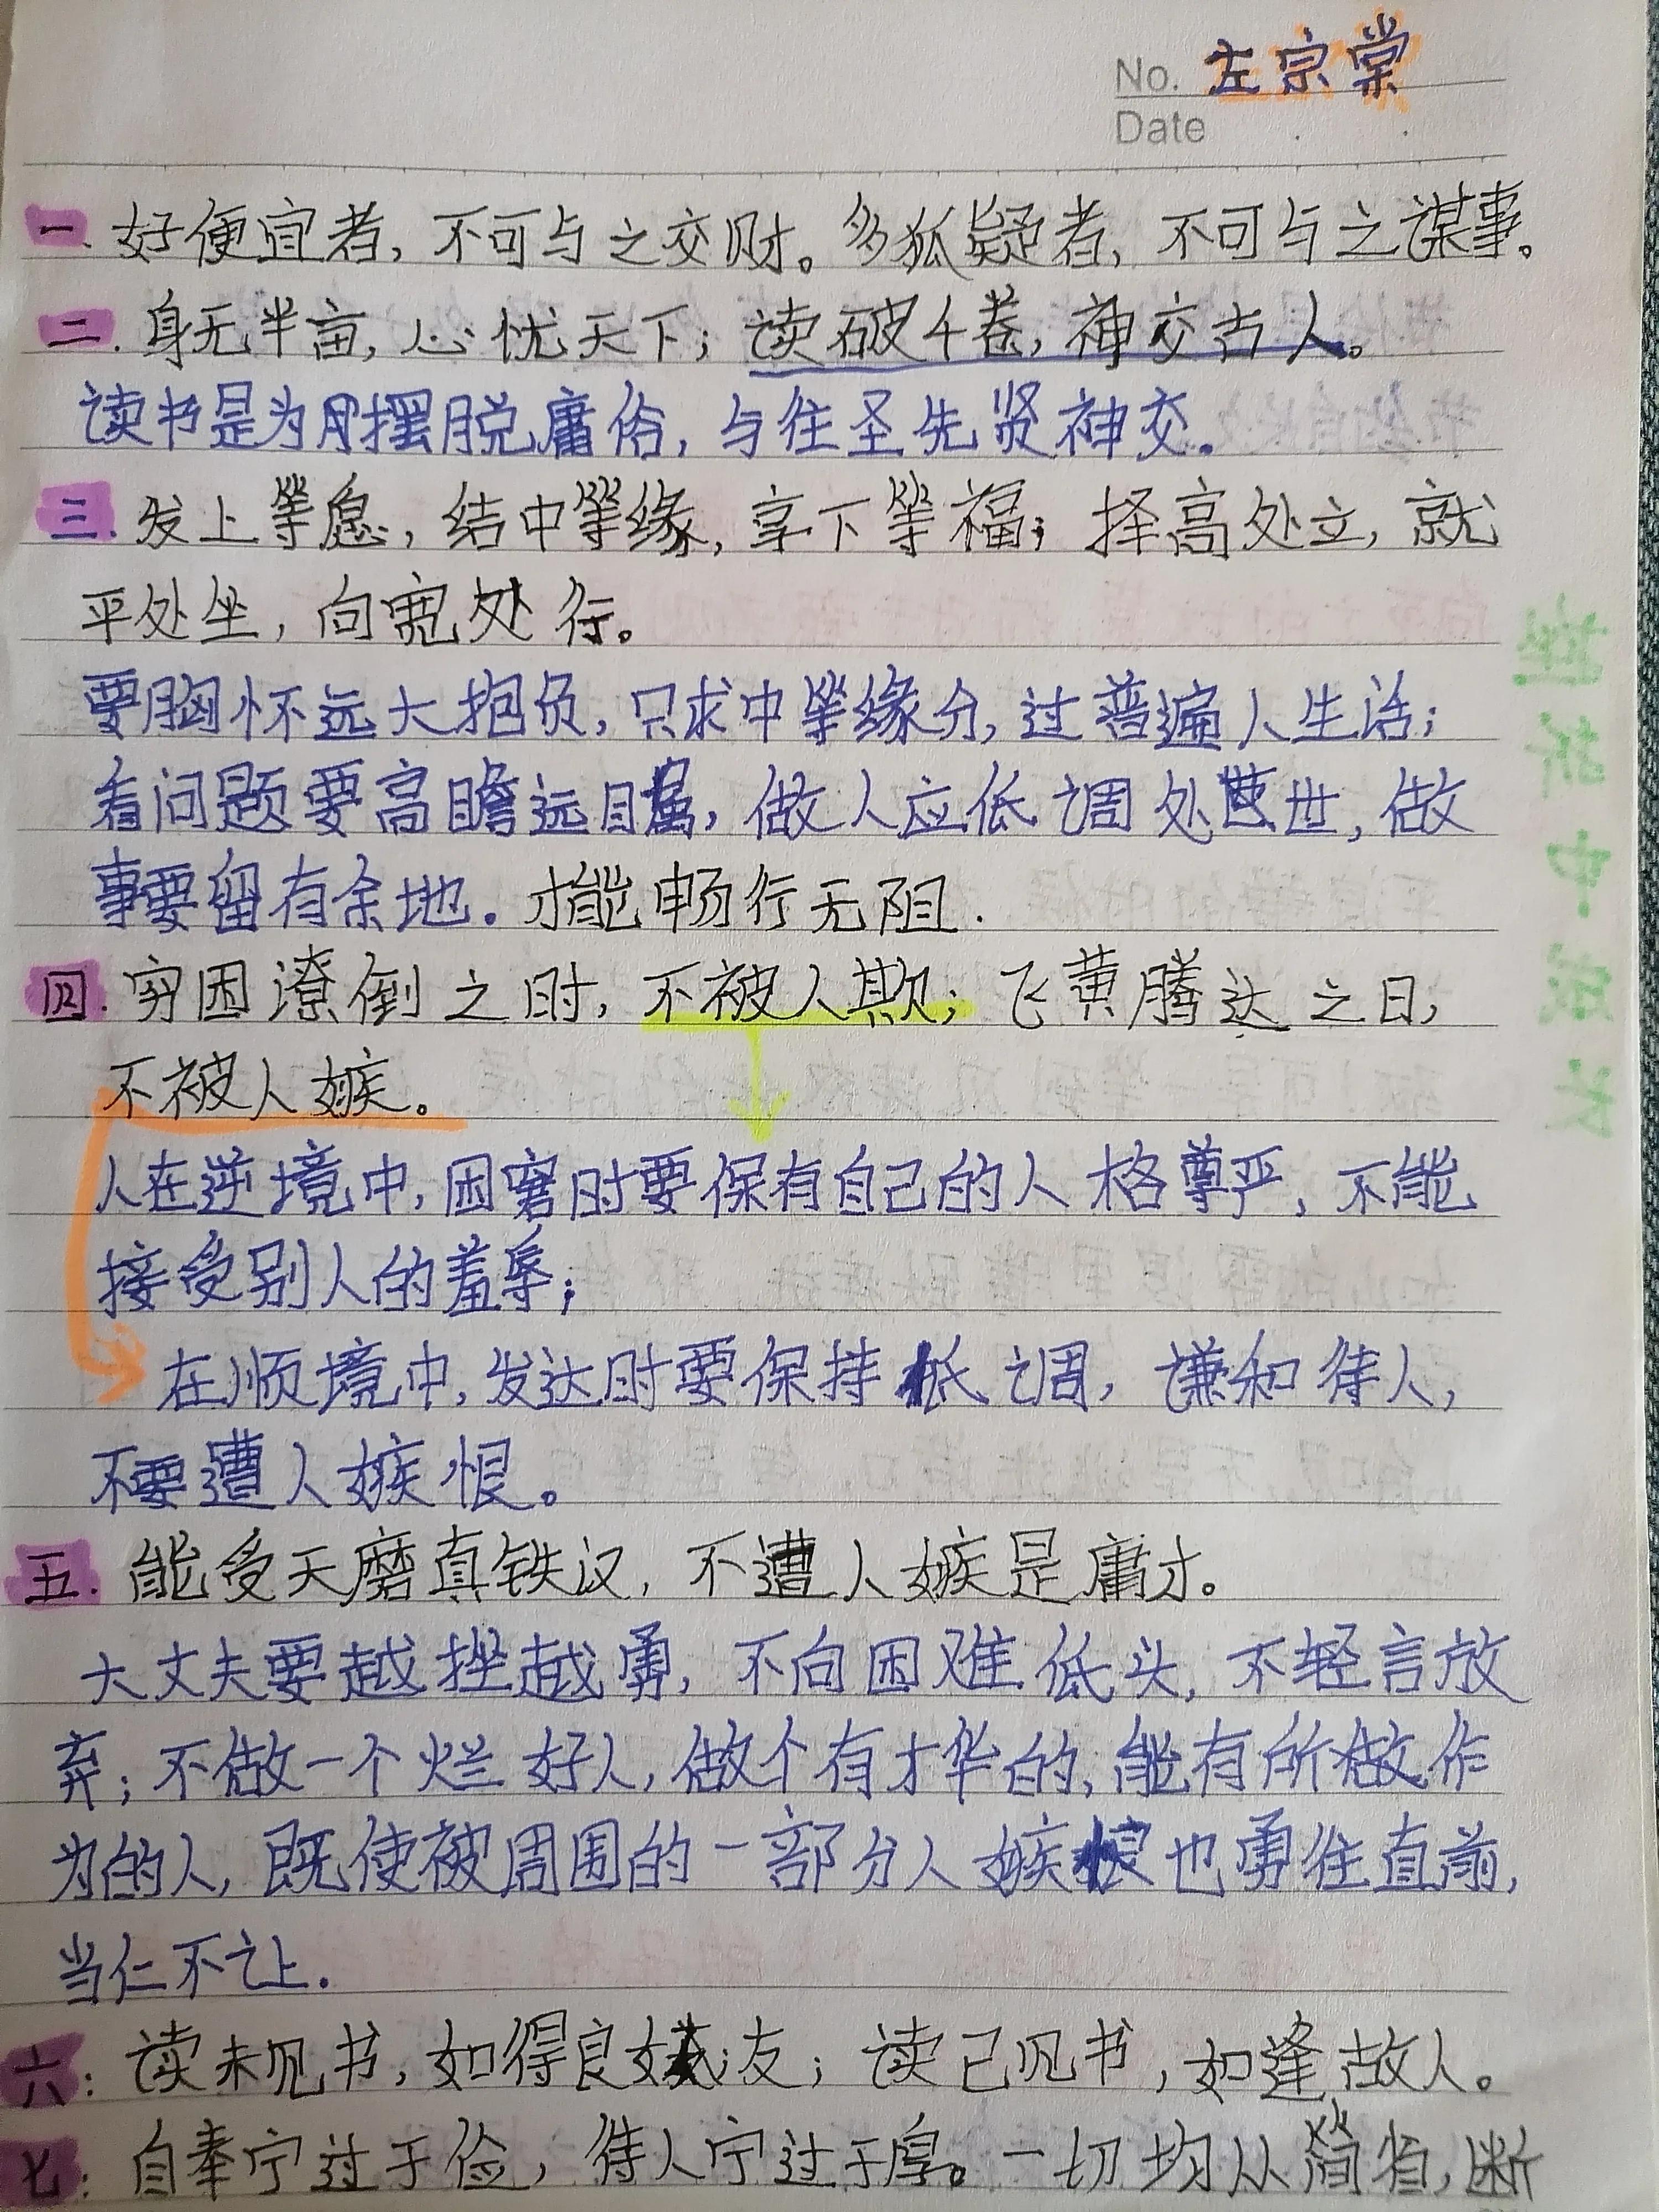 No. 左宗棠
Date
一. 好便宜者，不可与之交财。多狐疑者，不可与之谋事。
二. 身无半亩，心忧天下；读破千卷，神交古人。
读书是为了摆脱庸俗，与往圣先贤神交。
三. 发上等愿，结中等缘，享下等福；择高处立，就
平处坐，向宽处行。
要胸怀远大抱负，只求中等缘分，过普遍人生活；
看问题要高瞻远瞩，做人应低调处世，做
事要留有余地。才能畅行无阻.
四. 穷困潦倒之时，不被人欺；飞黄腾达之日，
不被人嫉。
人在逆境中，困窘时要保有自己的人格尊严，不能
接受别人的羞辱；
在顺境中，发达时要保持低调，谦和待人，
不要遭人嫉恨。
五. 能受天磨真铁汉，不遭人嫉是庸才。
大丈夫要越挫越勇，不向困难低头，不轻言放
弃；不做一个烂好人，做个有才华的，能有所做作
为的人，既使被周围的一部分人嫉恨也勇往直前，
当仁不让.
六: 读未见书，如得良友；读已见书，如逢故人。
七: 自奉宁过于俭，待人宁过于厚。一切均从简省，断